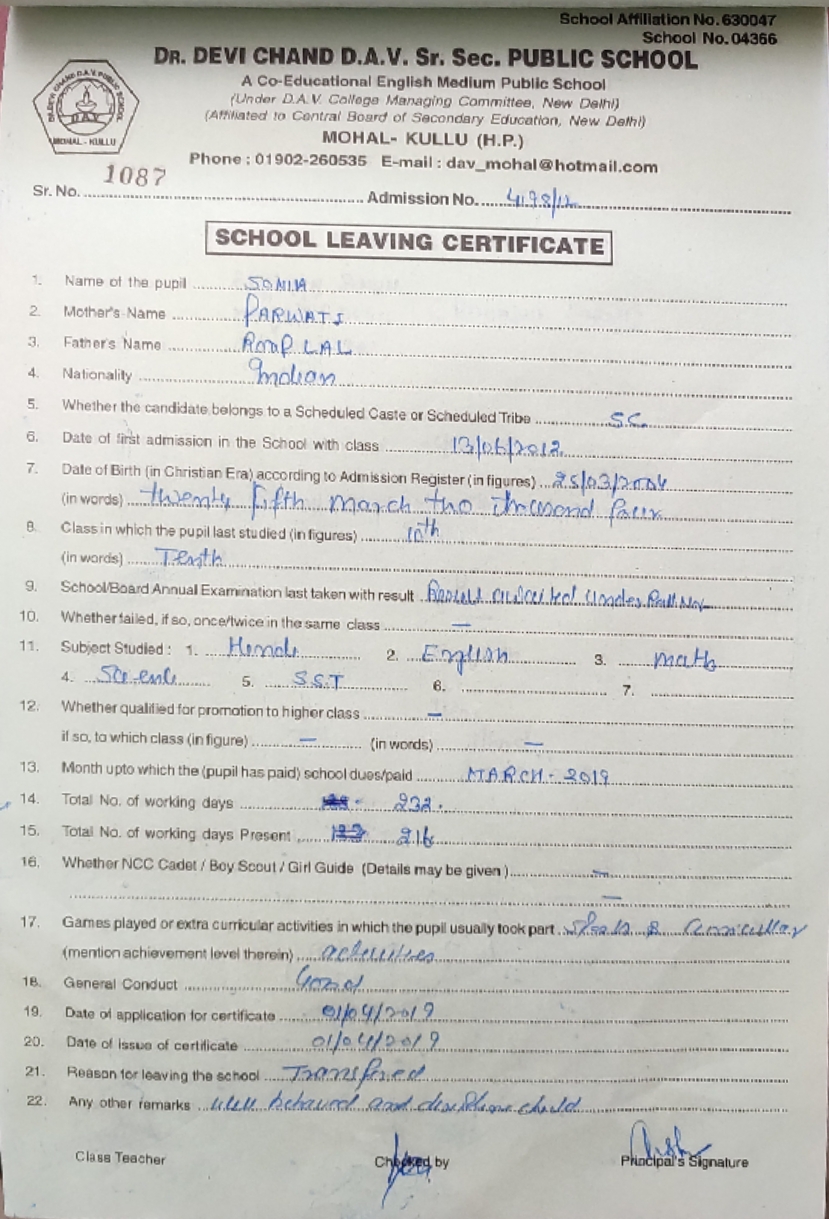 School Affiliation No. 630047
School No. 04366
DR. DEVI CHAND D.A.V. Sr. Sec. PUBLIC SCHOOL
A Co-Educational English Medium Public School
(Under D.A.V. College Managing Committee, New Delhi)
(Affiliated to Central Board of Secondary Education, New Delhi)
MOHAL- KULLU (H.P.)
Phone : 01902-260535 E-mail : dav_mohal@hotmail.com
Sr. No. 1087 Admission No. 4198/12
SCHOOL LEAVING CERTIFICATE
1. Name of the pupil SONIA
2. Mother's Name PARWATI
3. Father's Name ROOP LAL
4. Nationality Indian
5. Whether the candidate belongs to a Scheduled Caste or Scheduled Tribe S.C.
6. Date of first admission in the School with class 13/06/2012
7. Date of Birth (in Christian Era) according to Admission Register (in figures) 25/03/2004
(in words) twenty fifth march two thousand four
8. Class in which the pupil last studied (in figures) 10th
(in words) Tenth
9. School/Board Annual Examination last taken with result Result awaited Under Roll No
10. Whether failed, if so, once/twice in the same class —
11. Subject Studied : 1. Hindi 2. English 3. math
4. Science 5. S.S.T 6. 7.
12. Whether qualified for promotion to higher class —
if so, to which class (in figure) — (in words) —
13. Month upto which the (pupil has paid) school dues/paid MARCH - 2019
14. Total No. of working days 232.
15. Total No. of working days Present 216
16. Whether NCC Cadet / Boy Scout / Girl Guide (Details may be given ) —
—
17. Games played or extra curricular activities in which the pupil usually took part
(mention achievement level therein) activities
18. General Conduct Good
19. Date of application for certificate 01/04/2019
20. Date of issue of certificate 01/04/2019
21. Reason for leaving the school Transfered
22. Any other remarks well behaved and discipline child
Class Teacher Checked by Principal's Signature